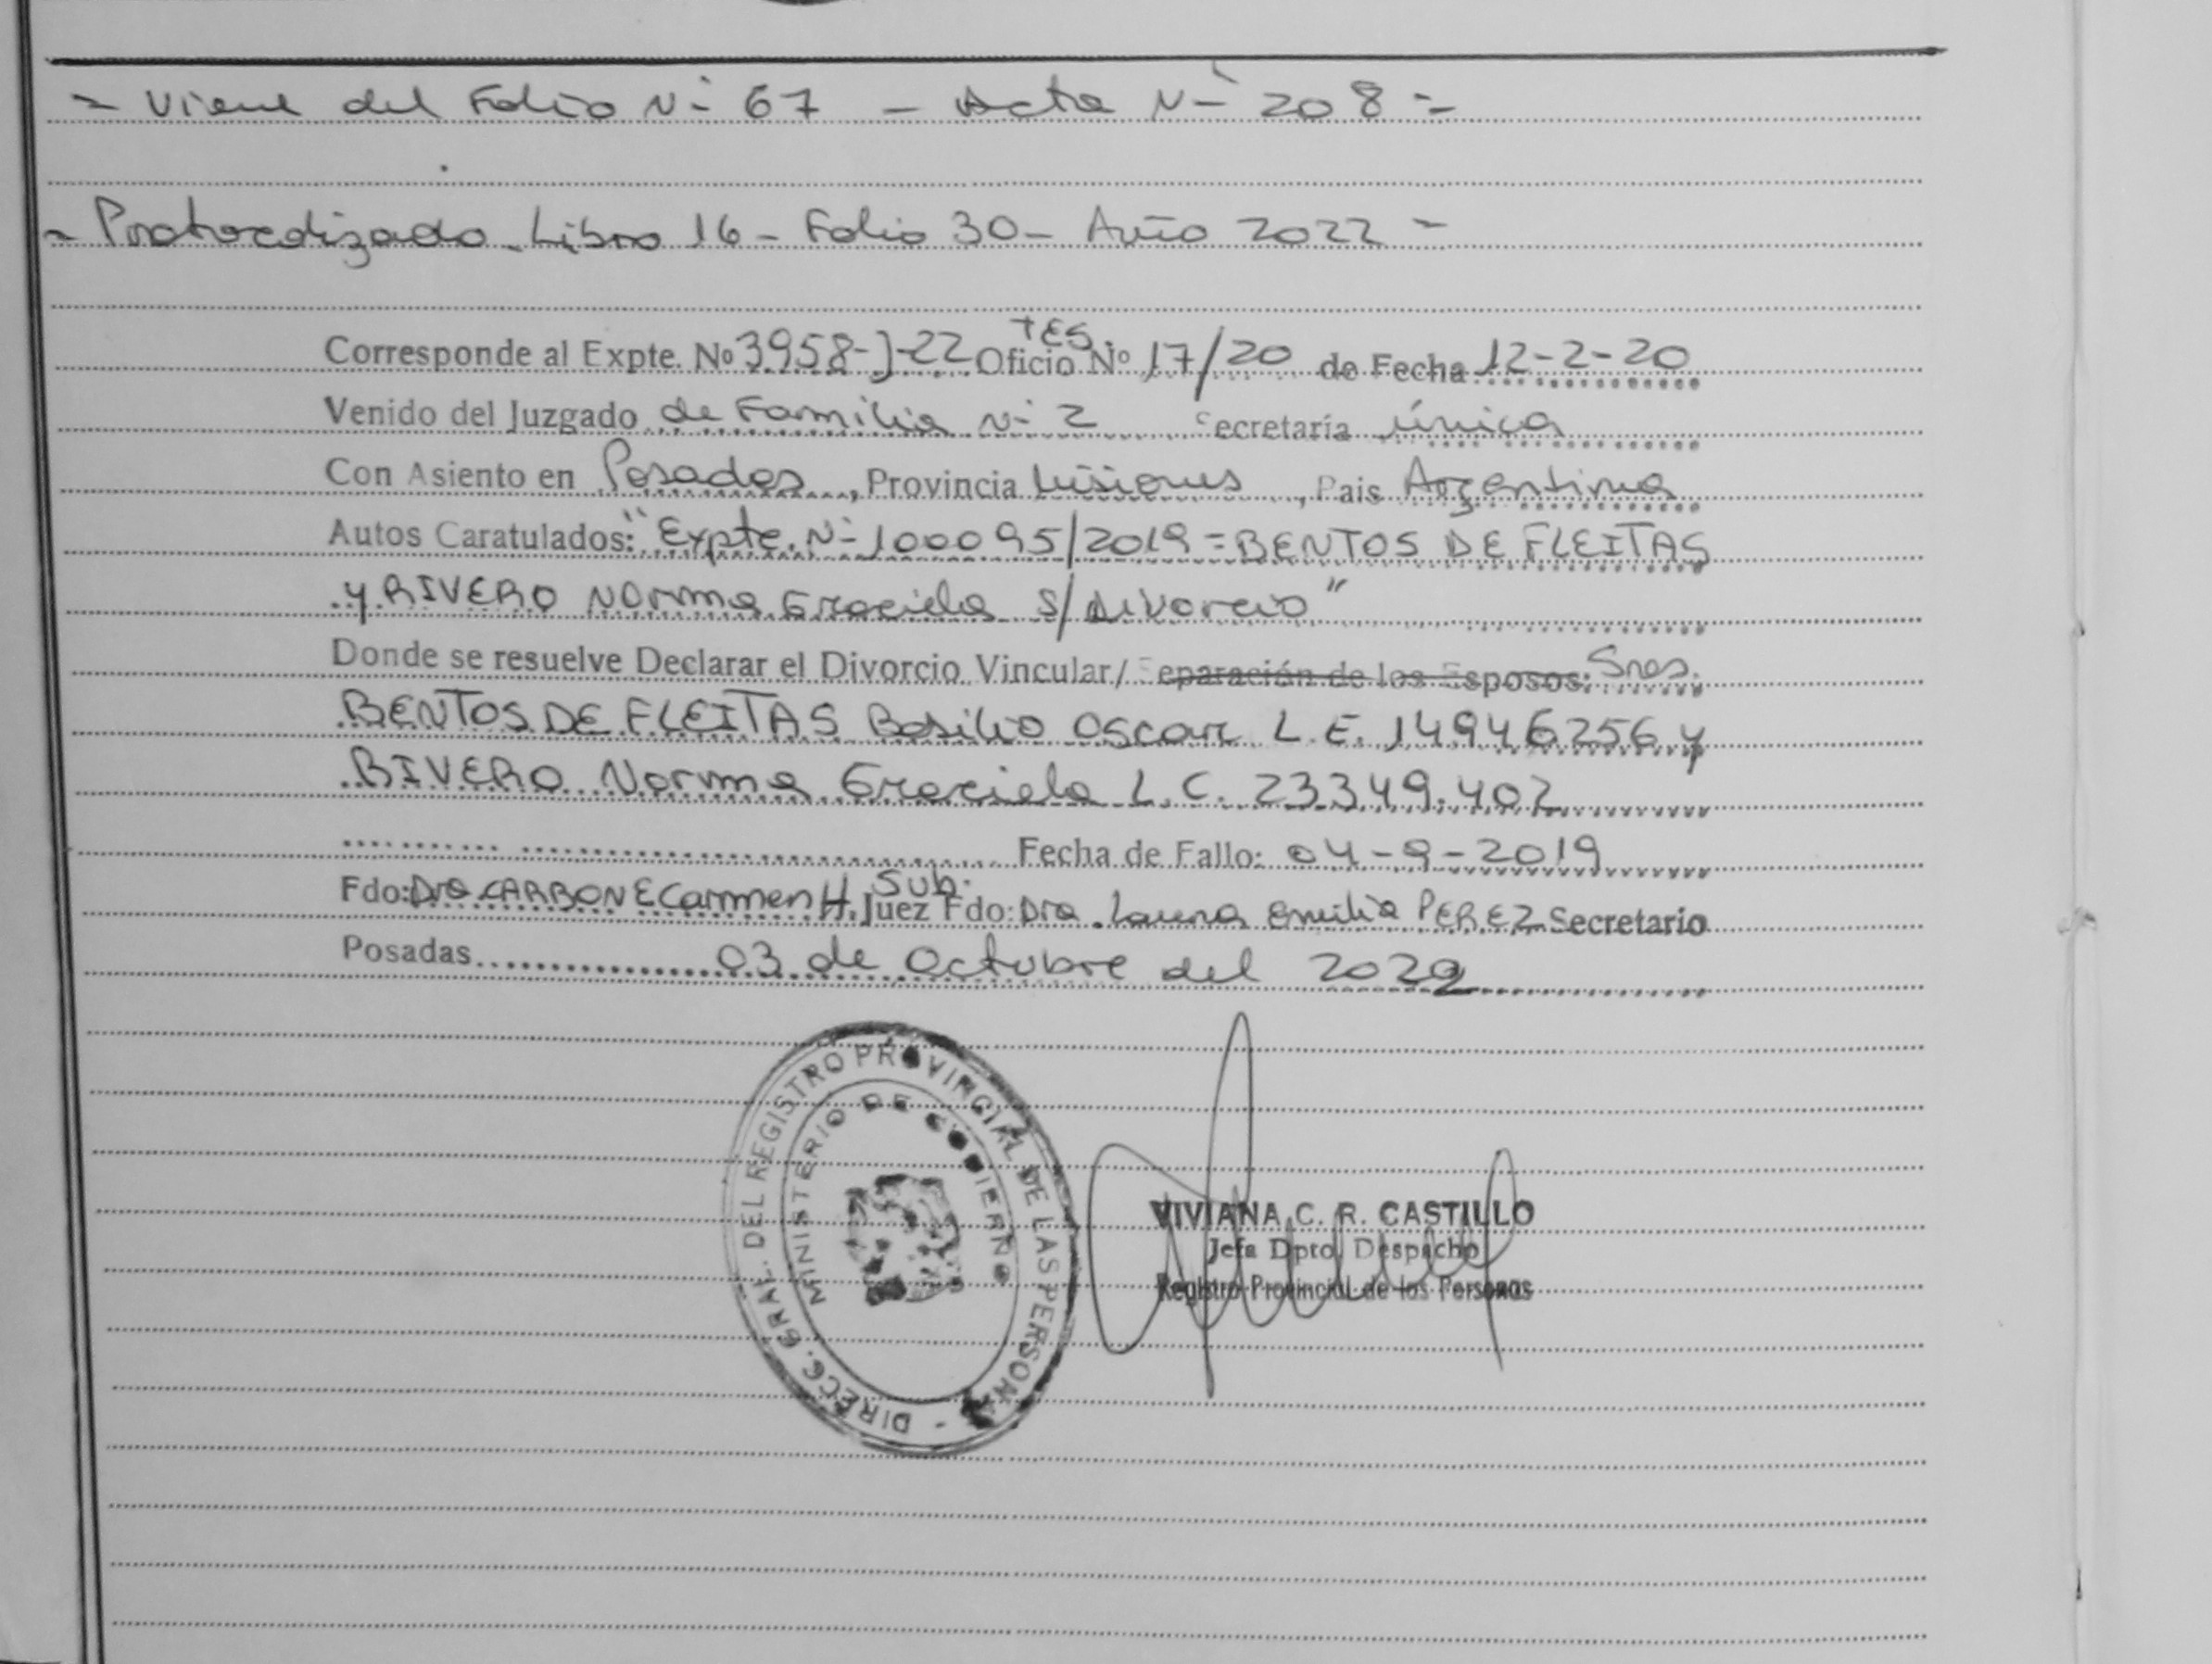 = Viene del Folio Nº 67 - Acta Nº 208 =
- Protocolizado - Libro 16 - Folio 30 - Año 2022 -
Corresponde al Expte. Nº 3958-J-22 TES. Oficio Nº 17/20 de Fecha 12-2-20
Venido del Juzgado de Familia Nº 2 Secretaría única
Con Asiento en Posadas, Provincia Misiones, Pais Argentina
Autos Caratulados: "Expte. Nº 100095/2019 = BENTOS DE FLEITAS
y RIVERO Norma Graciela S/ Divorcio"
Donde se resuelve Declarar el Divorcio Vincular/ Separación de los Esposos: Sres.
BENTOS DE FLEITAS Basilio Oscar L.E. 14946256 y
RIVERO Norma Graciela L.C. 23349.402
Fecha de Fallo: 04-9-2019
Fdo: Dra CARBONE Carmen H. Sub. Juez Fdo: Dra. Laura Emilia PEREZ Secretario
Posadas 03 de Octubre del 2022
DIRECC. GRAL. DEL REGISTRO PROVINCIAL DE LAS PERSONAS -
MINISTERIO DE GOBIERNO
VIVIANA C. R. CASTILLO
Jefa Dpto. Despacho
Registro Provincial de las Personas